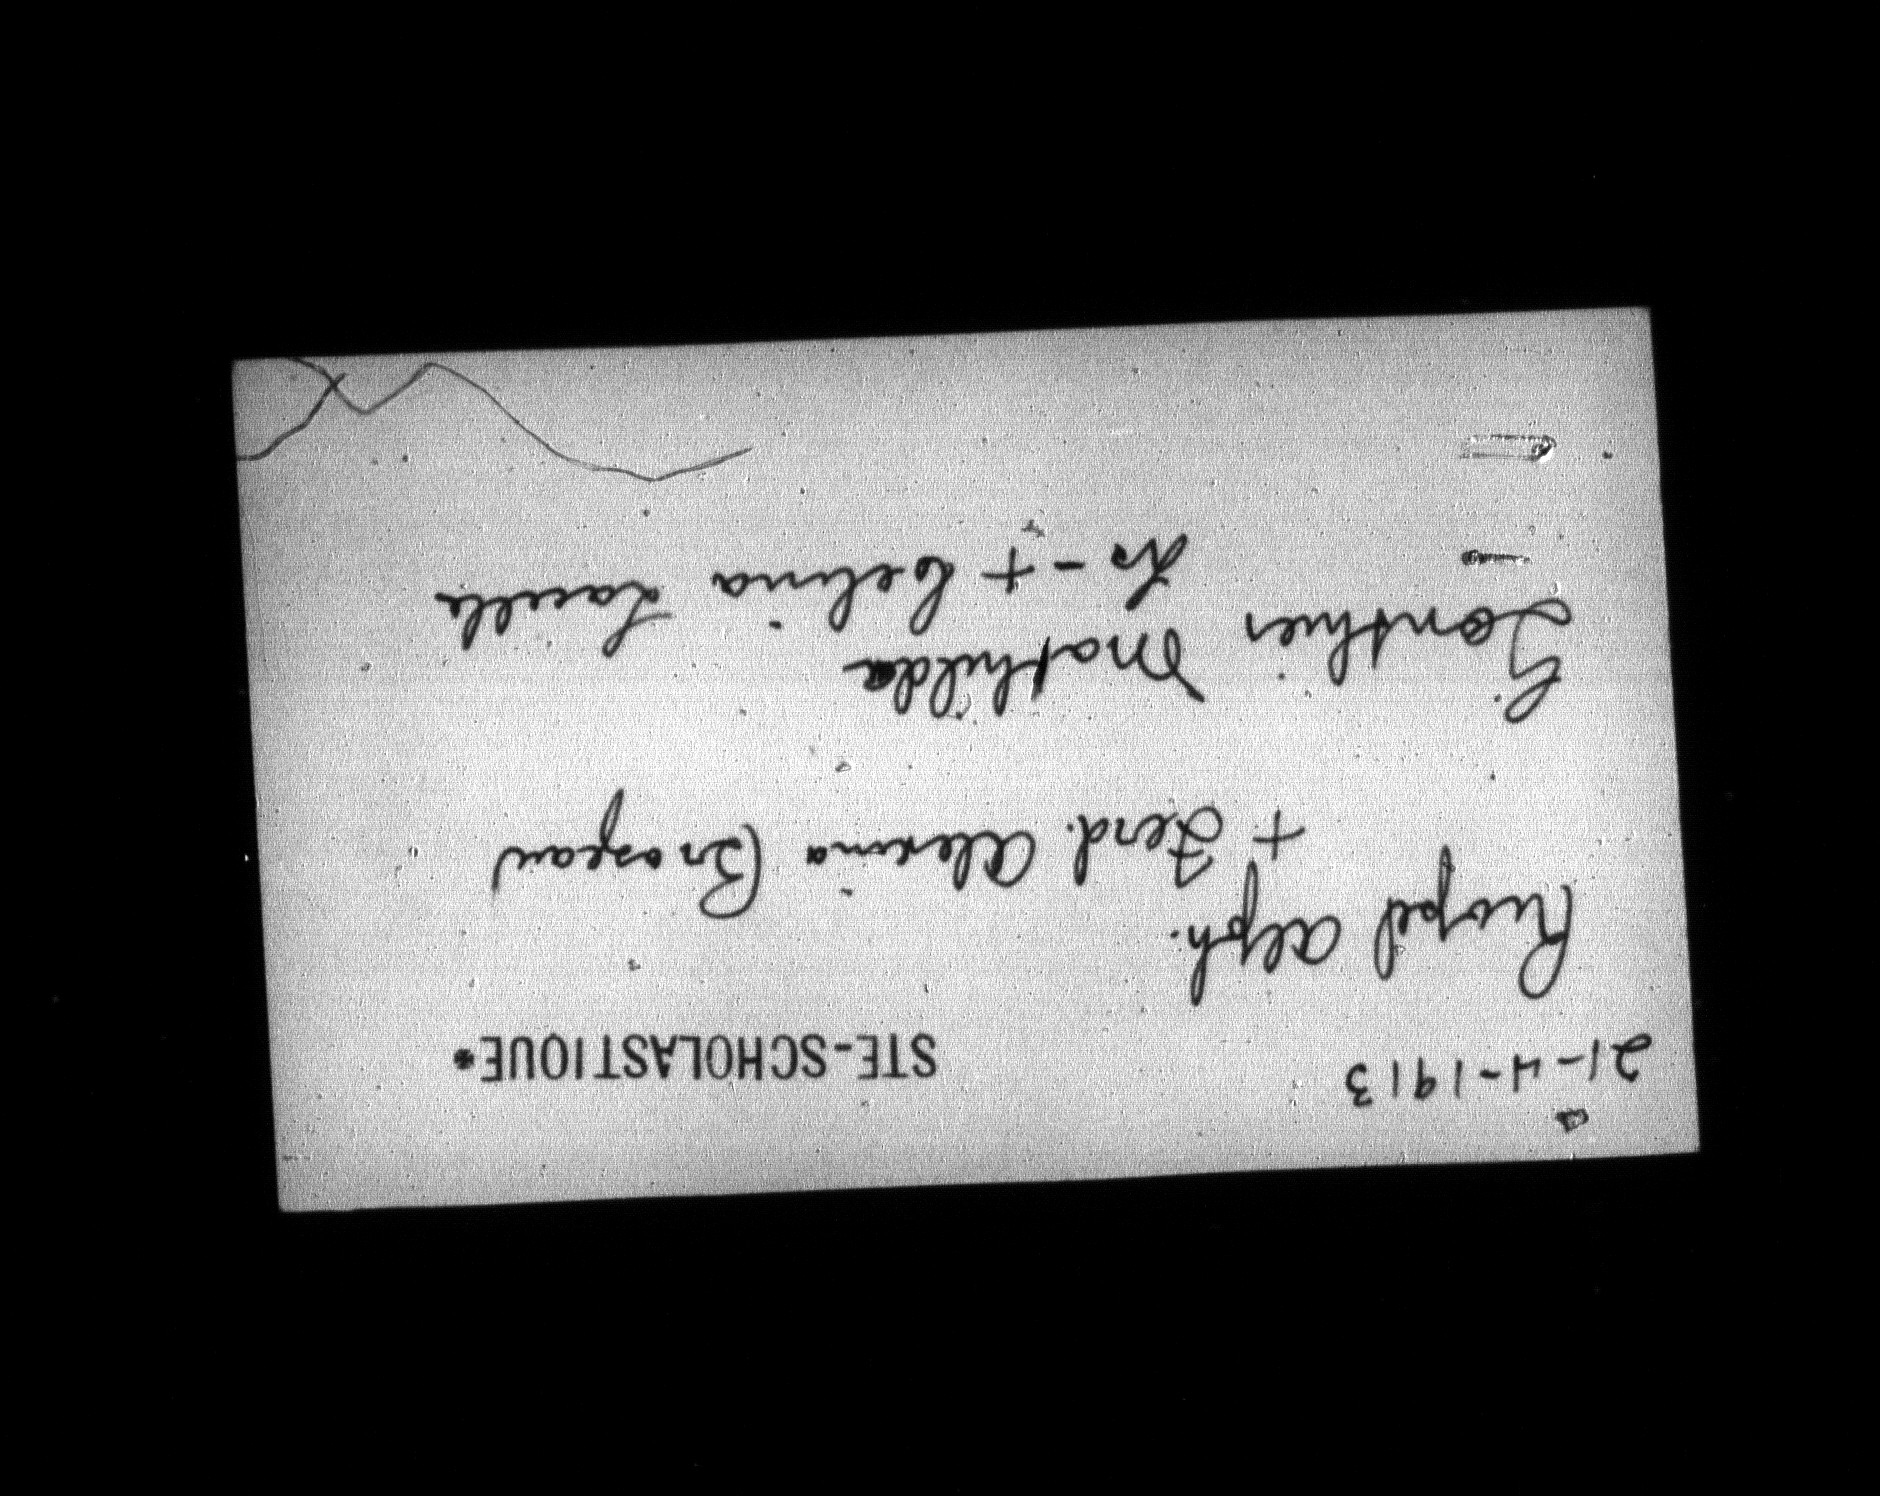 21-4-1913 STE-SCHOLASTIQUE.
Riopel Alph.
+ Ferd. Alexina Brazeau
Gonthier Mathilda
Ls - + Celina Lacelle